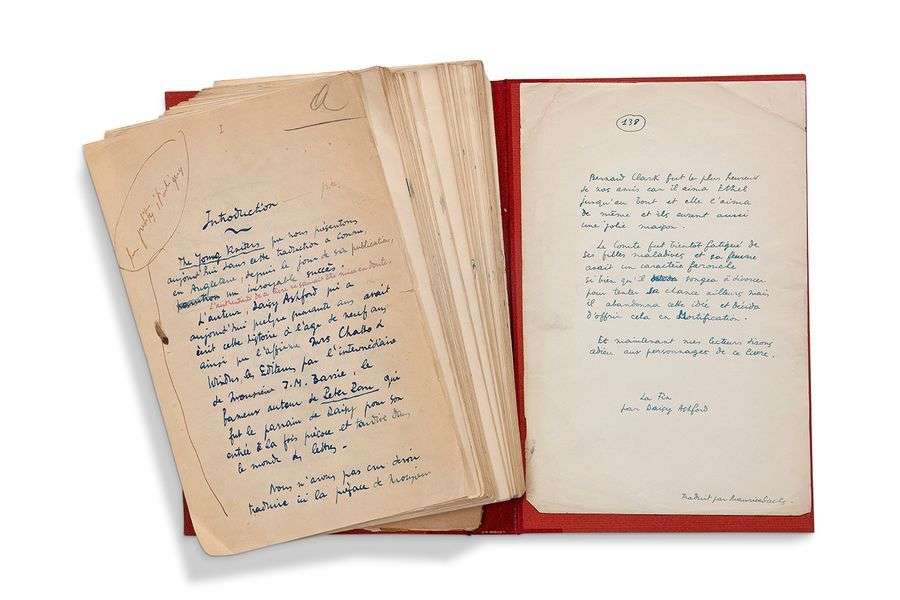 a
I
en petits italiques
Introduction
The Young Visiters, que nous présentons
aujourd'hui dans cette traduction a connu,
en Angleterre, depuis le jour de sa publication,
un incroyable succès.
L'auteur, Daisy Ashford qui a
aujourd'hui quelque quarante ans avait
écrit cette histoire à l'age de neuf ans
ainsi que l'affirme Mrs Chatto &
Windus, les Editeurs, par l'intermédiaire
de Monsieur J.M. Barrie, le
fameux auteur de Peter Pan, qui
fut le parrain de Daisy pour son
entrée à la fois précoce et tardive dans
le monde des lettres.
Nous n'avons pas cru devoir
traduire ici la préface de Monsieur
138
Bernard Clark fut le plus heureux
de nos amis car il aima Ethel
jusqu'au bout et elle l'aima
de même et ils eurent aussi
une jolie maison.
Le Comte fut bientot fatigué de
ses filles maladives et sa femme
avait un caractère farouche
si bien qu'il songea à divorcer
pour tenter la chance ailleurs mais
il abandonna cette idée et décida
d'offrir cela en Mortification.
Et maintenant mes lecteurs disons
adieu aux personnages de ce livre.
La Fin
par Daisy Ashford
Traduit par Maurice Sachs.